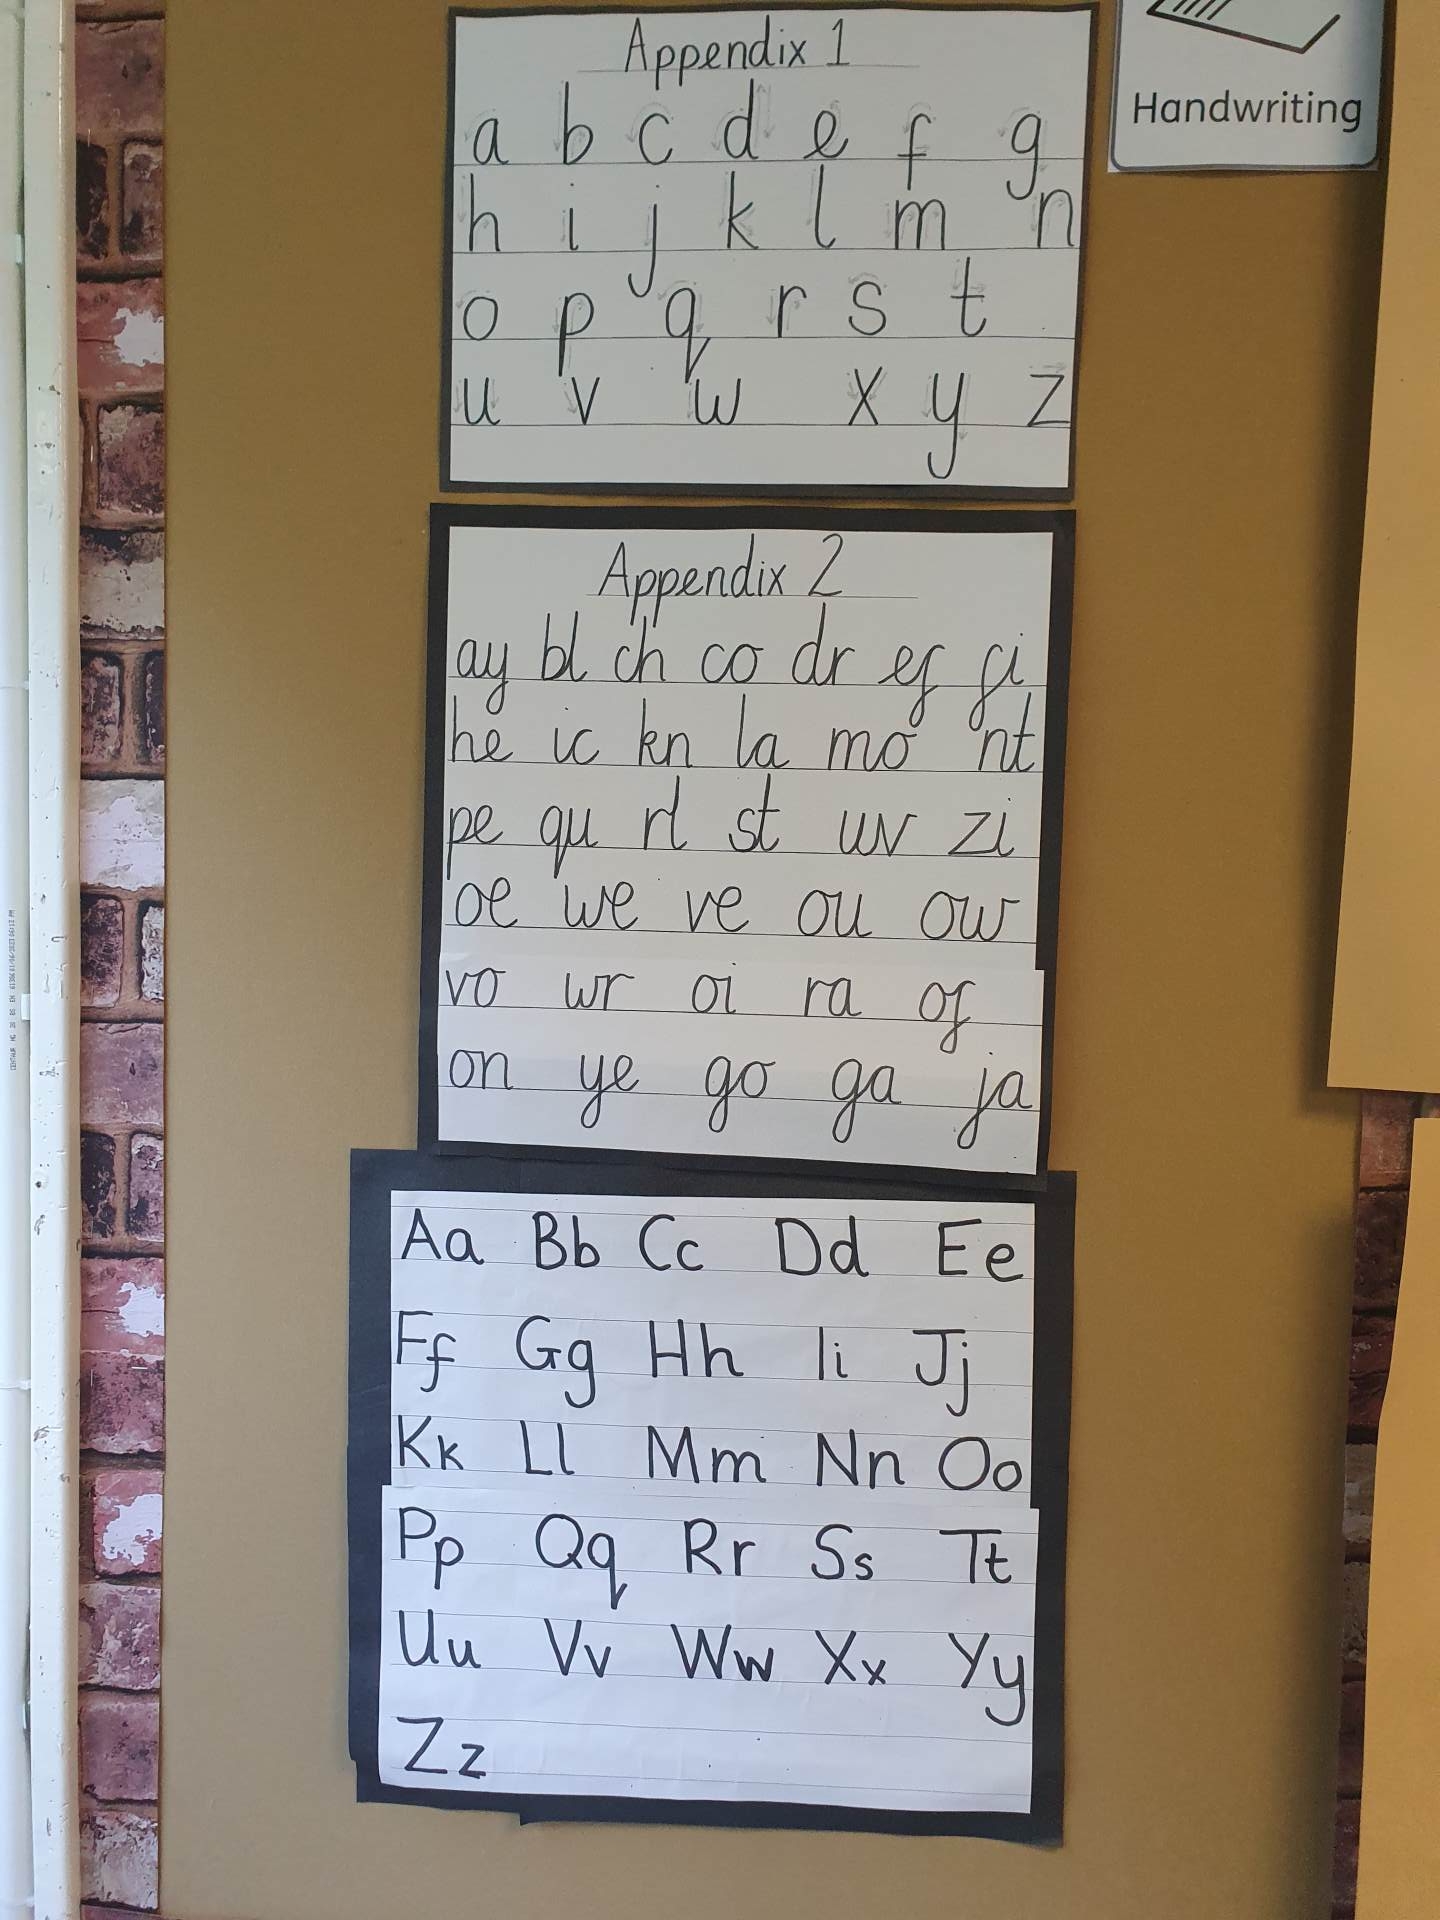 Appendix 1
a b c d e f g
h i j k l m n
o p q r s t
u v w x y z
Handwriting
Appendix 2
ay bl ch co dr ef fi
he ic kn la mo nt
pe qu rl st uv zi
oe we ve ou ow
vo wr oi ra of
on ye go ga ja
Aa Bb Cc Dd Ee
Ff Gg Hh Ii Jj
Kk Ll Mm Nn Oo
Pp Qq Rr Ss Tt
Uu Vv Ww Xx Yy
Zz